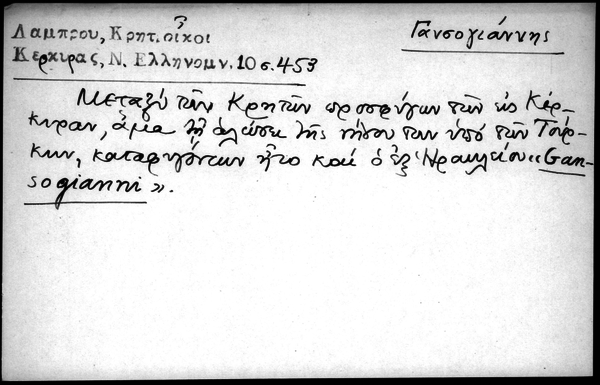 Λαμπρου, Κρητ. οἶκοι
Γανσογιάννης
Κερκιρας, Ν. Ελληνομν. 10 σ. 453
Μεταξύ τῶν Κρητῶν προσφύγων τῶν εἰς Κέρ-
κυραν, ἅμα τῇ ἁλώσει τῆς νήσου των ὑπό τῶν Τούρ-
κων, καταφυγόντων ἦτο καί ὁ ἐξ Ἡρακλείου «Gan-
sogianni».